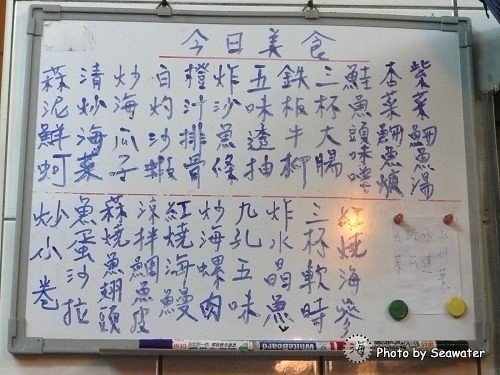 今日美食
紫菜魩魚湯
杏菜魩魚焿
鮭魚頭味噌
三杯大腸
鉄板牛柳
五味透抽
炸沙魚條
橙汁排骨
白灼沙蝦
炒海瓜子
清炒海菜
蒜泥鮮蚵
紅燒海參
三杯軟時
炸水晶魚
九孔五味
炒海螺肉
紅燒海鰻
涼拌鯛魚皮
蒜燒魚翅頭
魚蛋沙拉
炒小卷
水蓮
WhiteBoard
海 Photo by Seawater